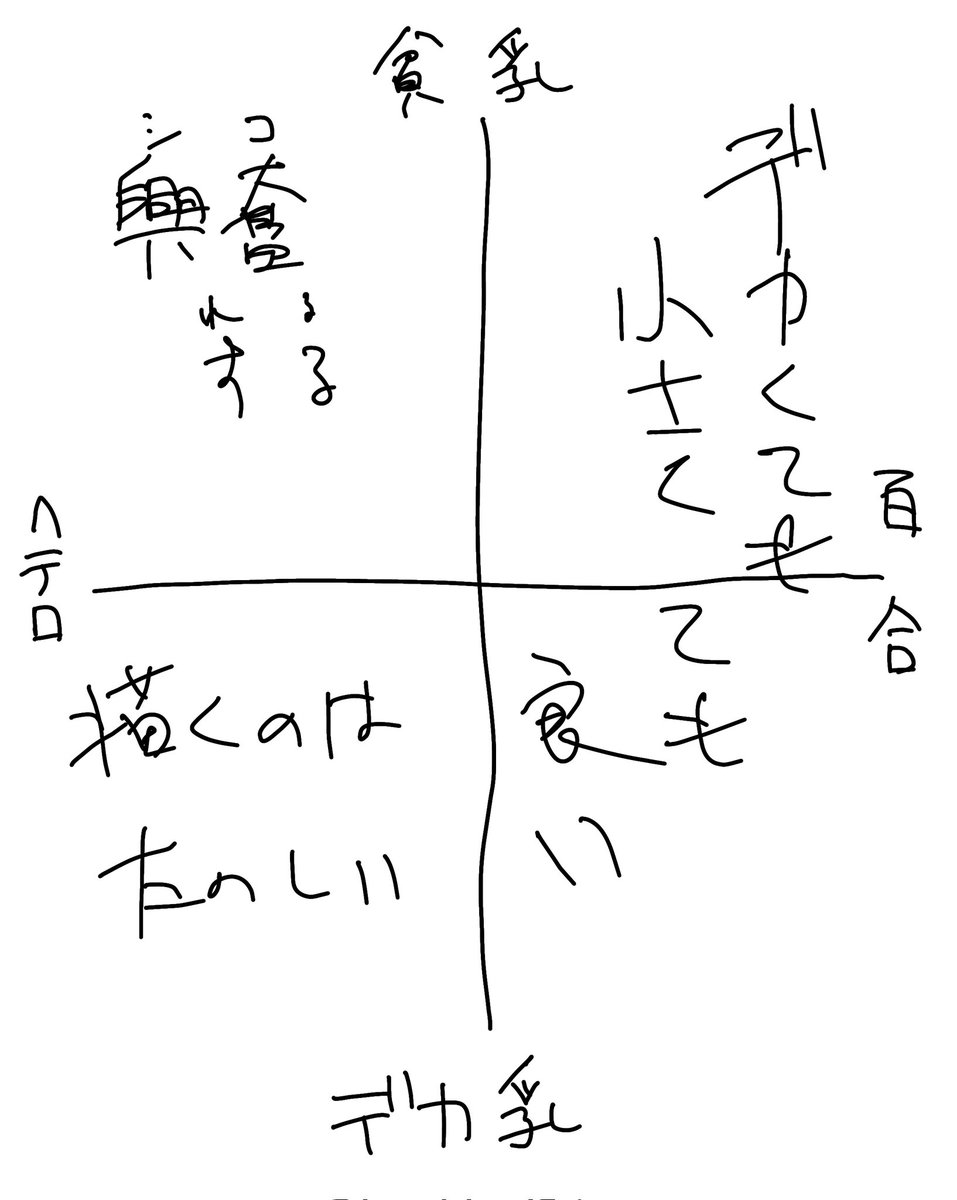 貧乳
シコ
興奮
れる
する
デカくても
小さくても
良い
ヘテロ
百合
描くのは
たのしい
デカ乳